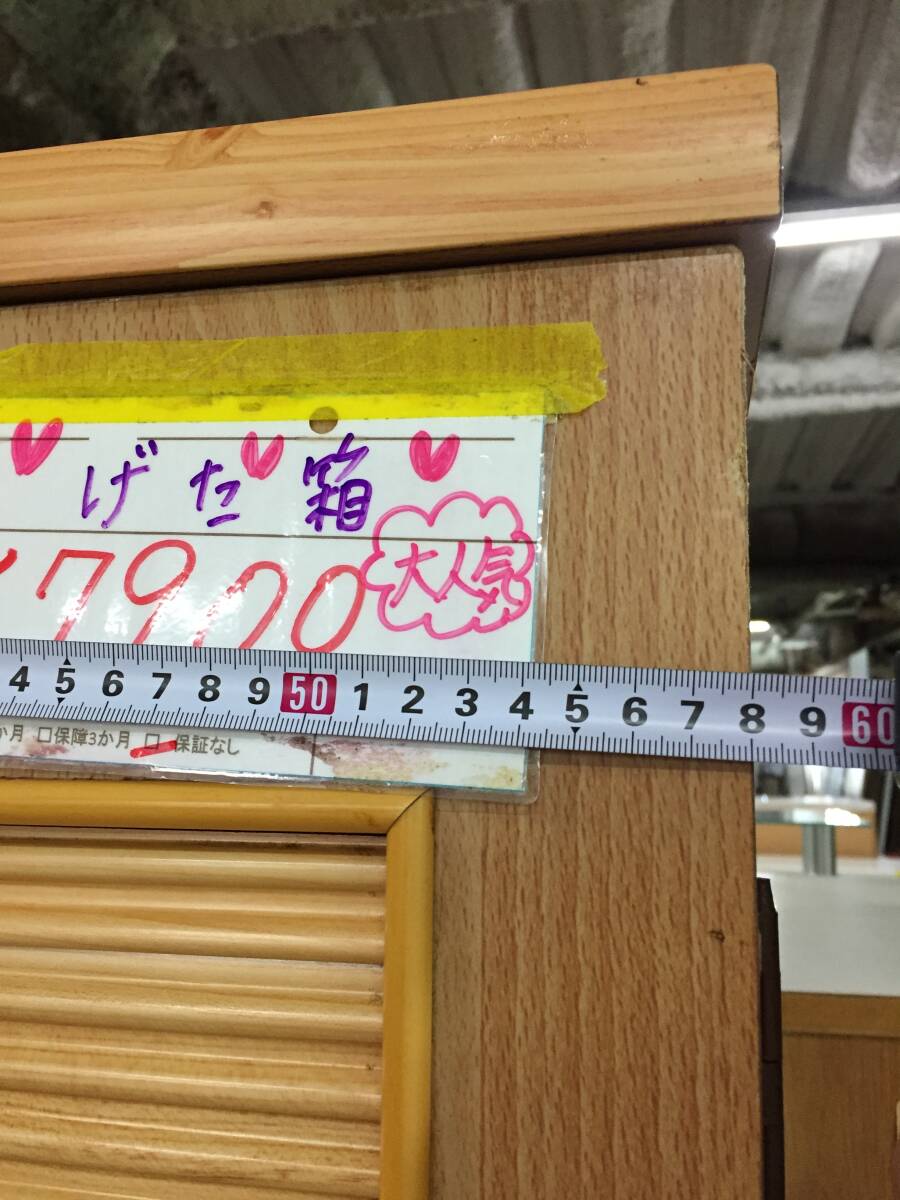 げた箱
7900
大人気
4 5 6 7 8 9 50 1 2 3 4 5 6 7 8 9 60
か月 □保障3か月 □保証なし